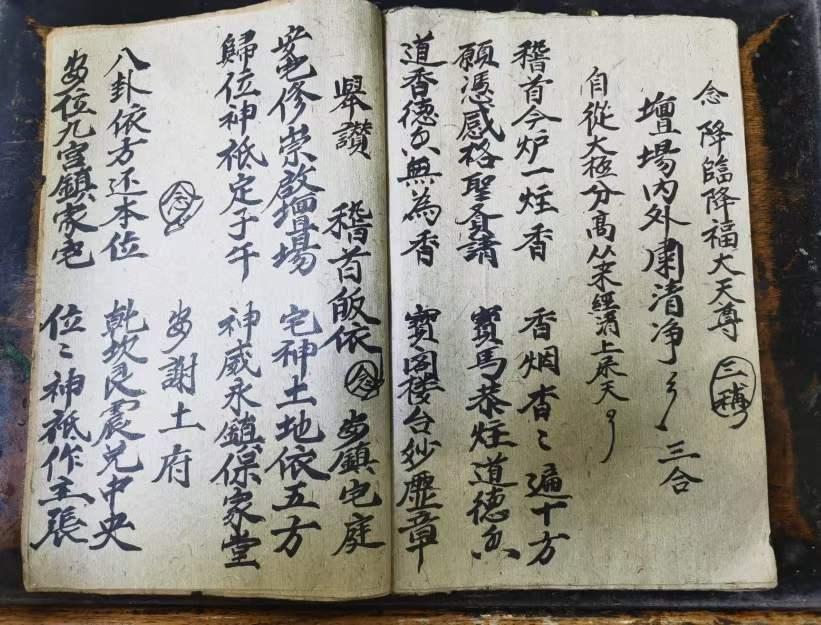 念 降臨降福大天尊 三稱
壇場內外肅清净 三合
自從大極分髙从来經清上承天
稽首今炉一炷香 香烟香〻遍十方
願憑感格聖 請 寳馬恭炷道德香
道香德香無為香 寳阁楼台妙虚章
舉讚 稽首皈依 念 安鎮宅庭
安宅修崇啟壇場 宅神土地依五方
歸位神祇定子午 神威永鎮保家堂
念 安謝土府
八卦依方还本位 乾坎艮震兑中央
安位九宫鎮家宅 位〻神祗作主張